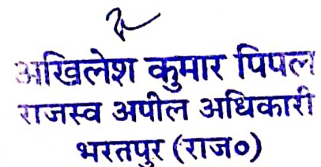 अखिलेश कुमार पिपल
राजस्व अपील अधिकारी
भरतपुर (राज०)